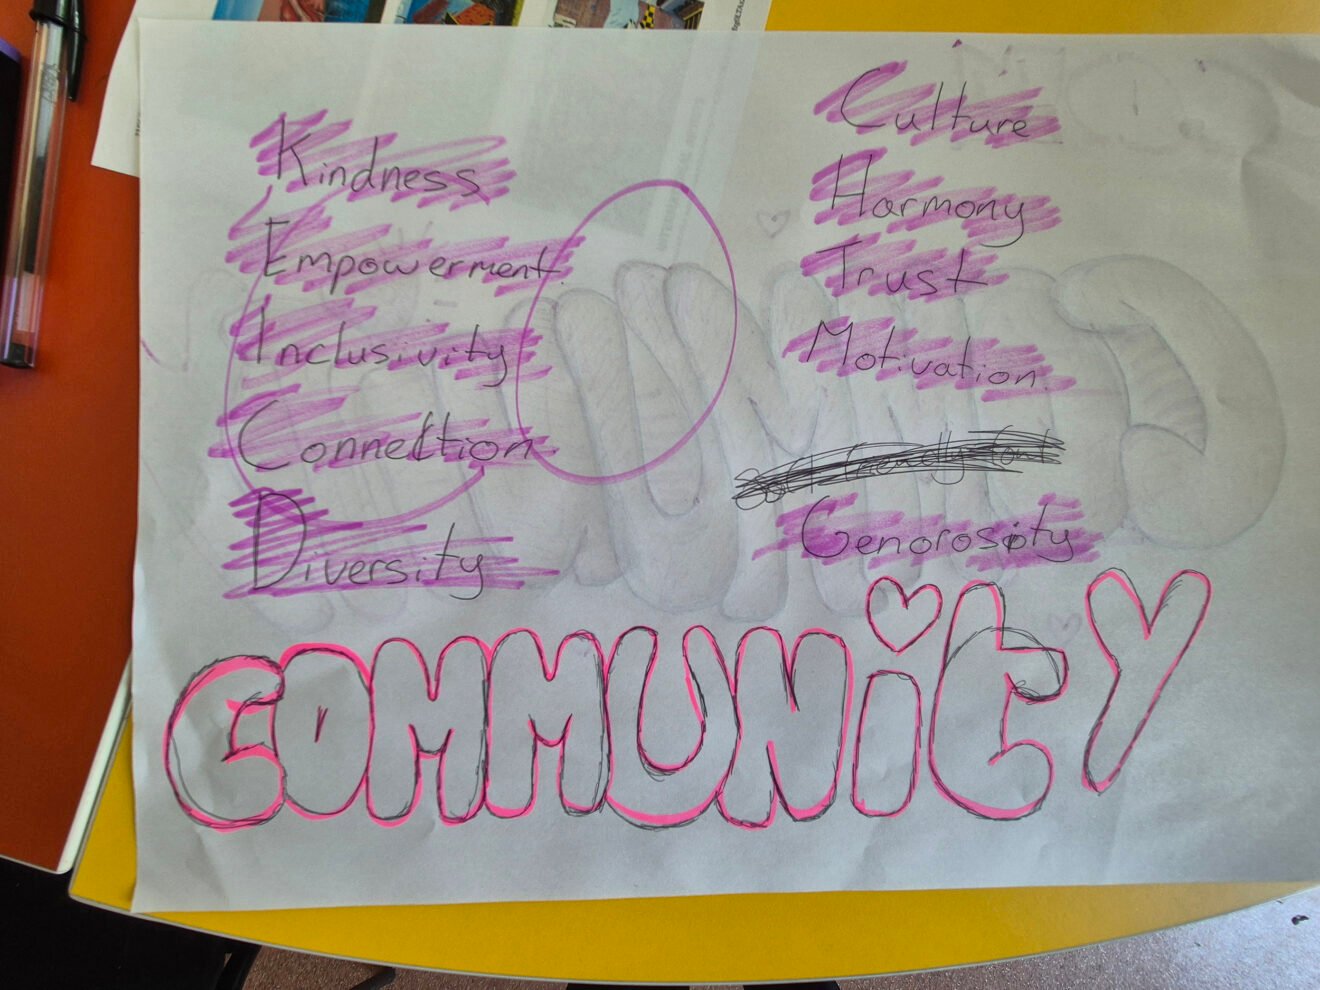 Kindness
Empowerment.
Inclusivity
Connection
Diversity
Culture
Harmony
Trust
Motivation.
Genorosity
COMMUNitY